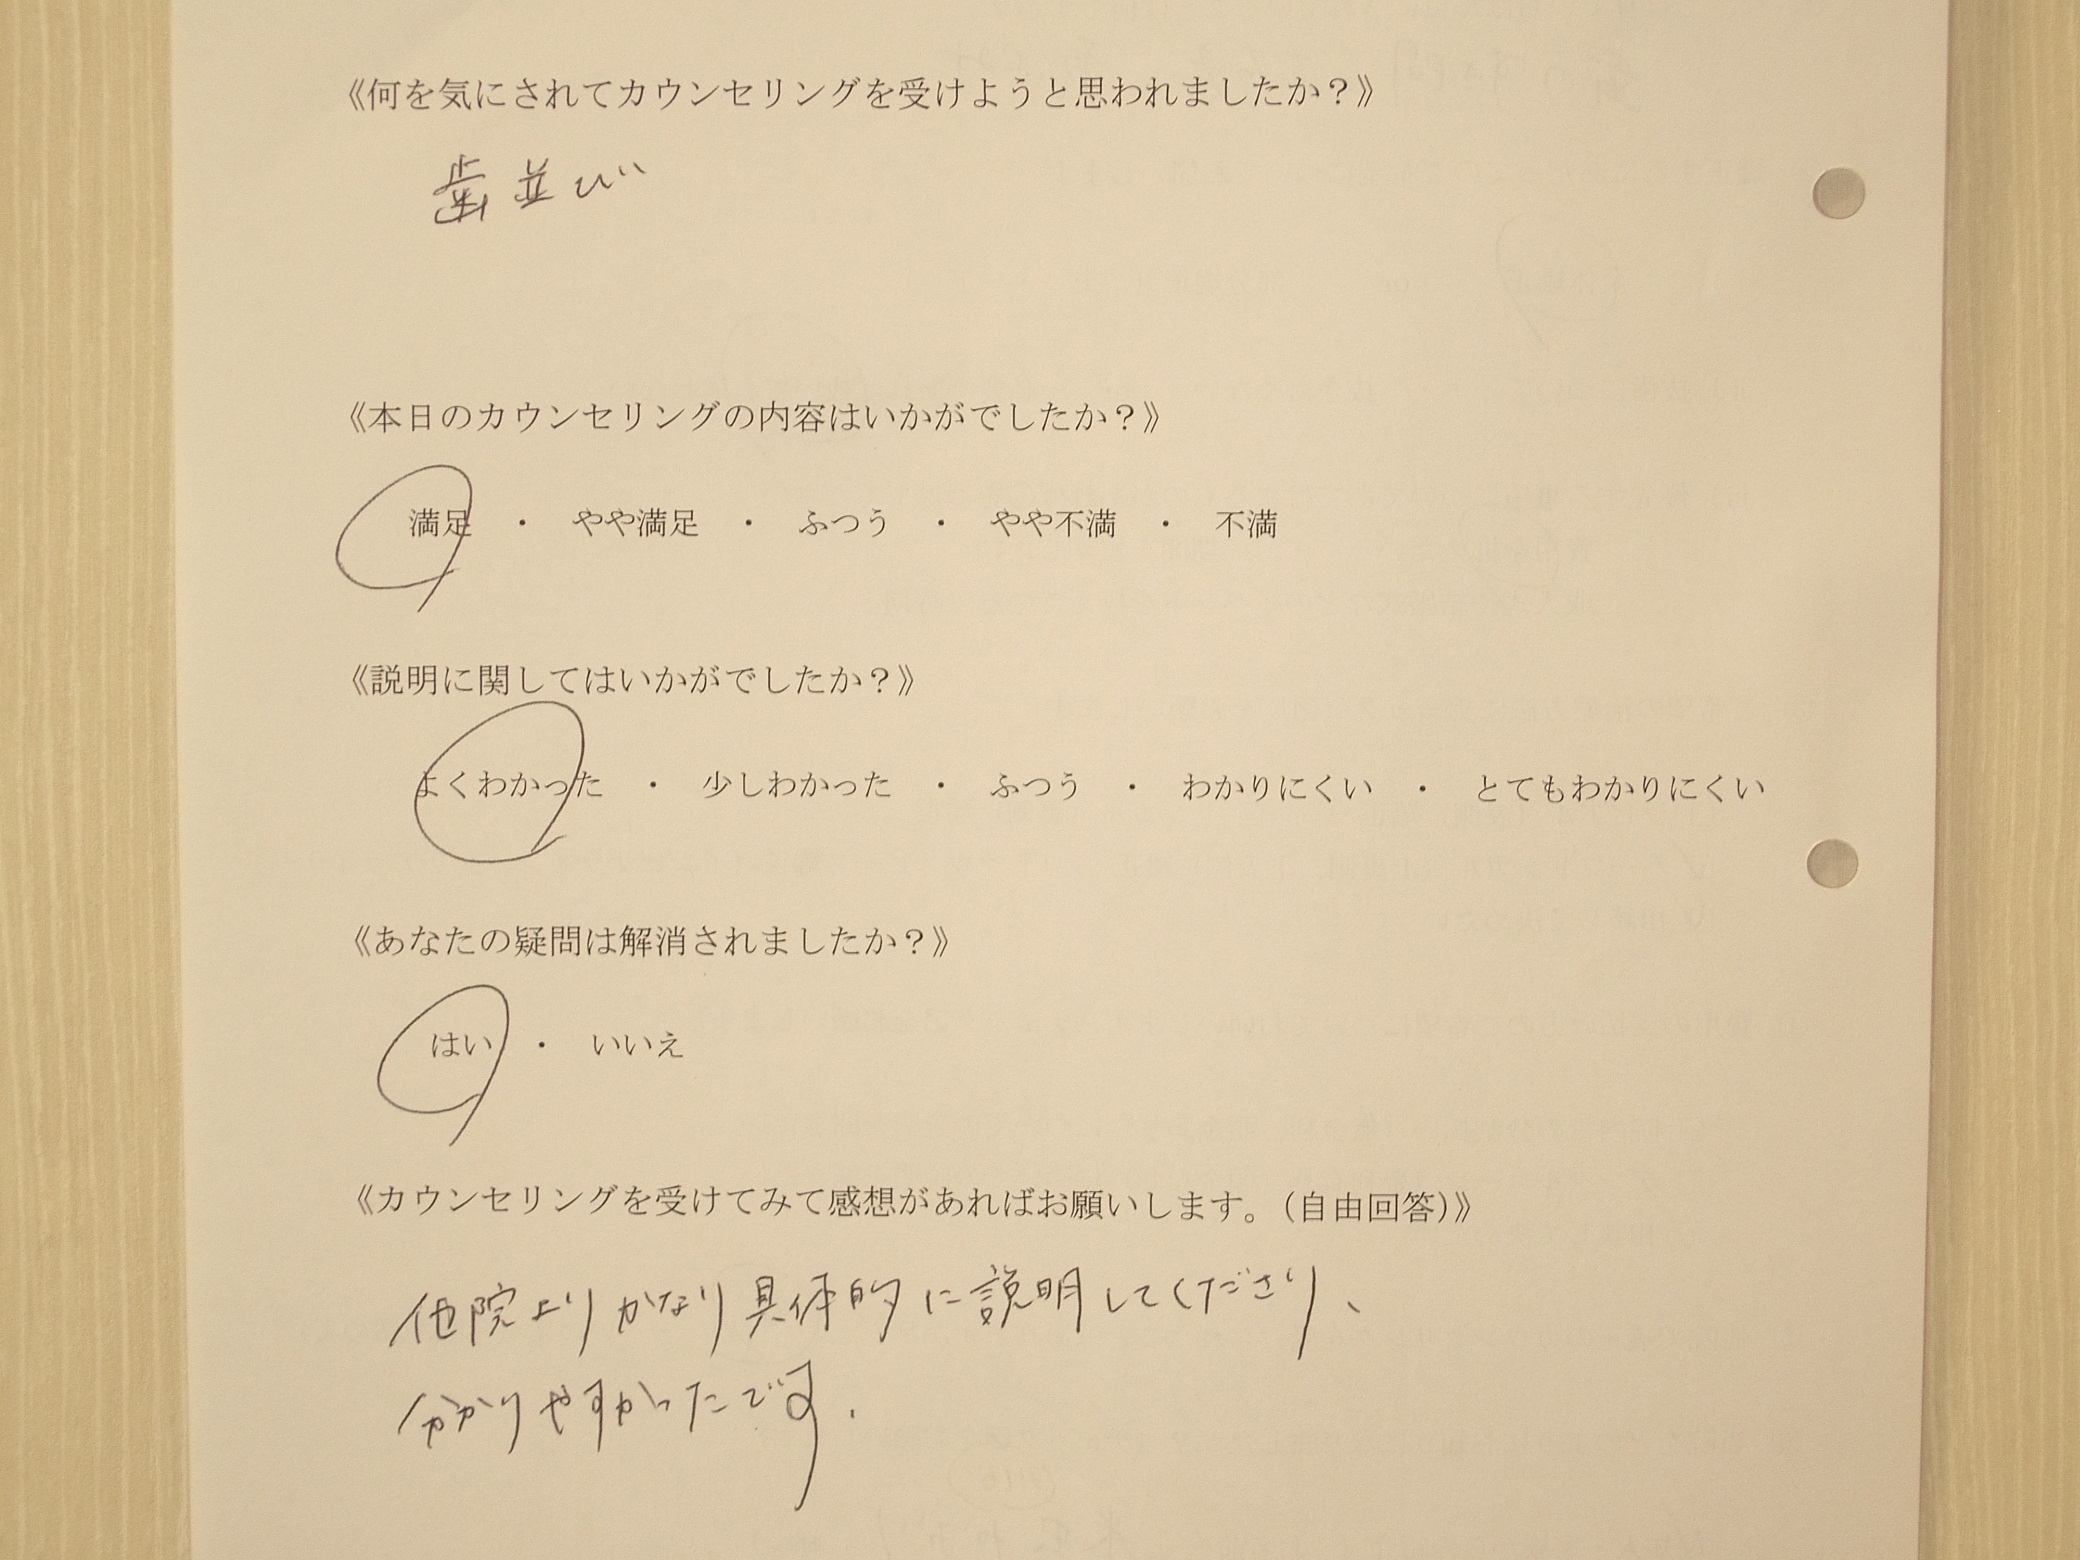 《何を気にされてカウンセリングを受けようと思われましたか？》
歯並び
《本日のカウンセリングの内容はいかがでしたか？》
満足 ・ やや満足 ・ ふつう ・ やや不満 ・ 不満
《説明に関してはいかがでしたか？》
よくわかった ・ 少しわかった ・ ふつう ・ わかりにくい ・ とてもわかりにくい
《あなたの疑問は解消されましたか？》
はい ・ いいえ
《カウンセリングを受けてみて感想があればお願いします。（自由回答）》
他院よりかなり具体的に説明してくださり、
分かりやすかったです.